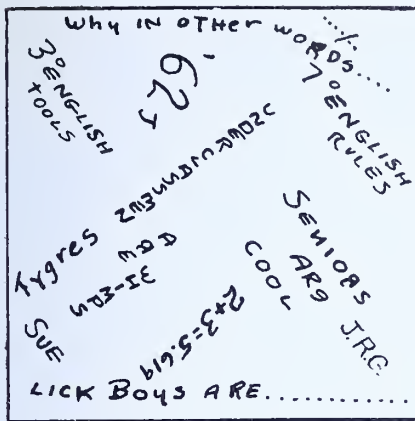 Why IN OTHer WORDS....
3° ENGLISH
TOOLS
'62
7° ENGLISH
RULES
Tygres
ARE
SUE
SENIORS
ARE
COOL
J.R.G.
2+3=5.619
LICK Boys ARE............